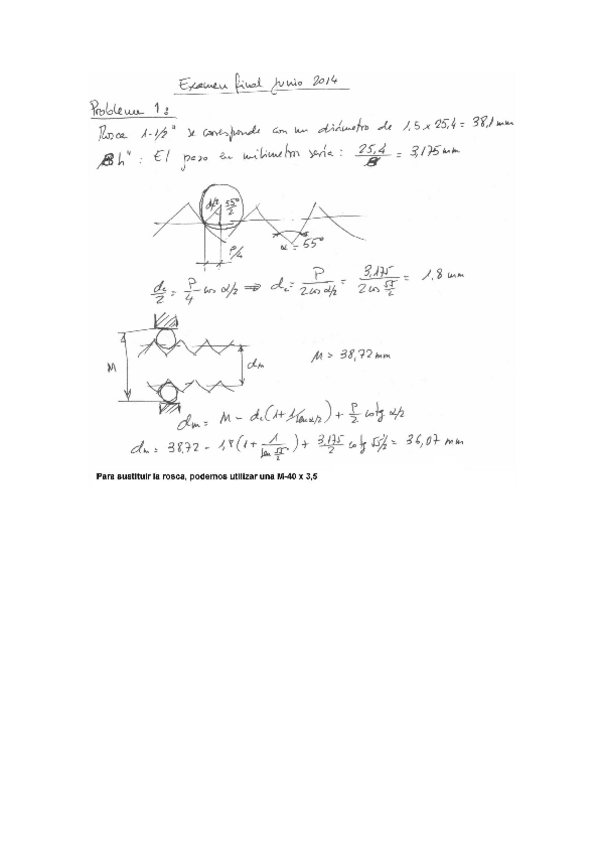 Examen final Junio 2014
Problema 1:
Rosca 1-1/2" se corresponde con un diámetro de 1,5 x 25,4 = 38,1 mm
8 h" : El paso en milímetros sería: 25,4/8 = 3,175 mm
dc/2 55°/2
α = 55°
P/4
dc/2 = P/4 · cos α/2 ⇒ dc = P/(2 cos α/2) = 3,175/(2 cos 55/2) = 1,8 mm
M
dm
M = 38,72 mm
dm = M - dc (1 + 1/sen α/2) + P/2 cotg α/2
dm = 38,72 - 1,8 (1 + 1/sen 55/2) + 3,175/2 cotg 55/2 = 36,07 mm
Para sustituir la rosca, podemos utilizar una M-40 x 3,5